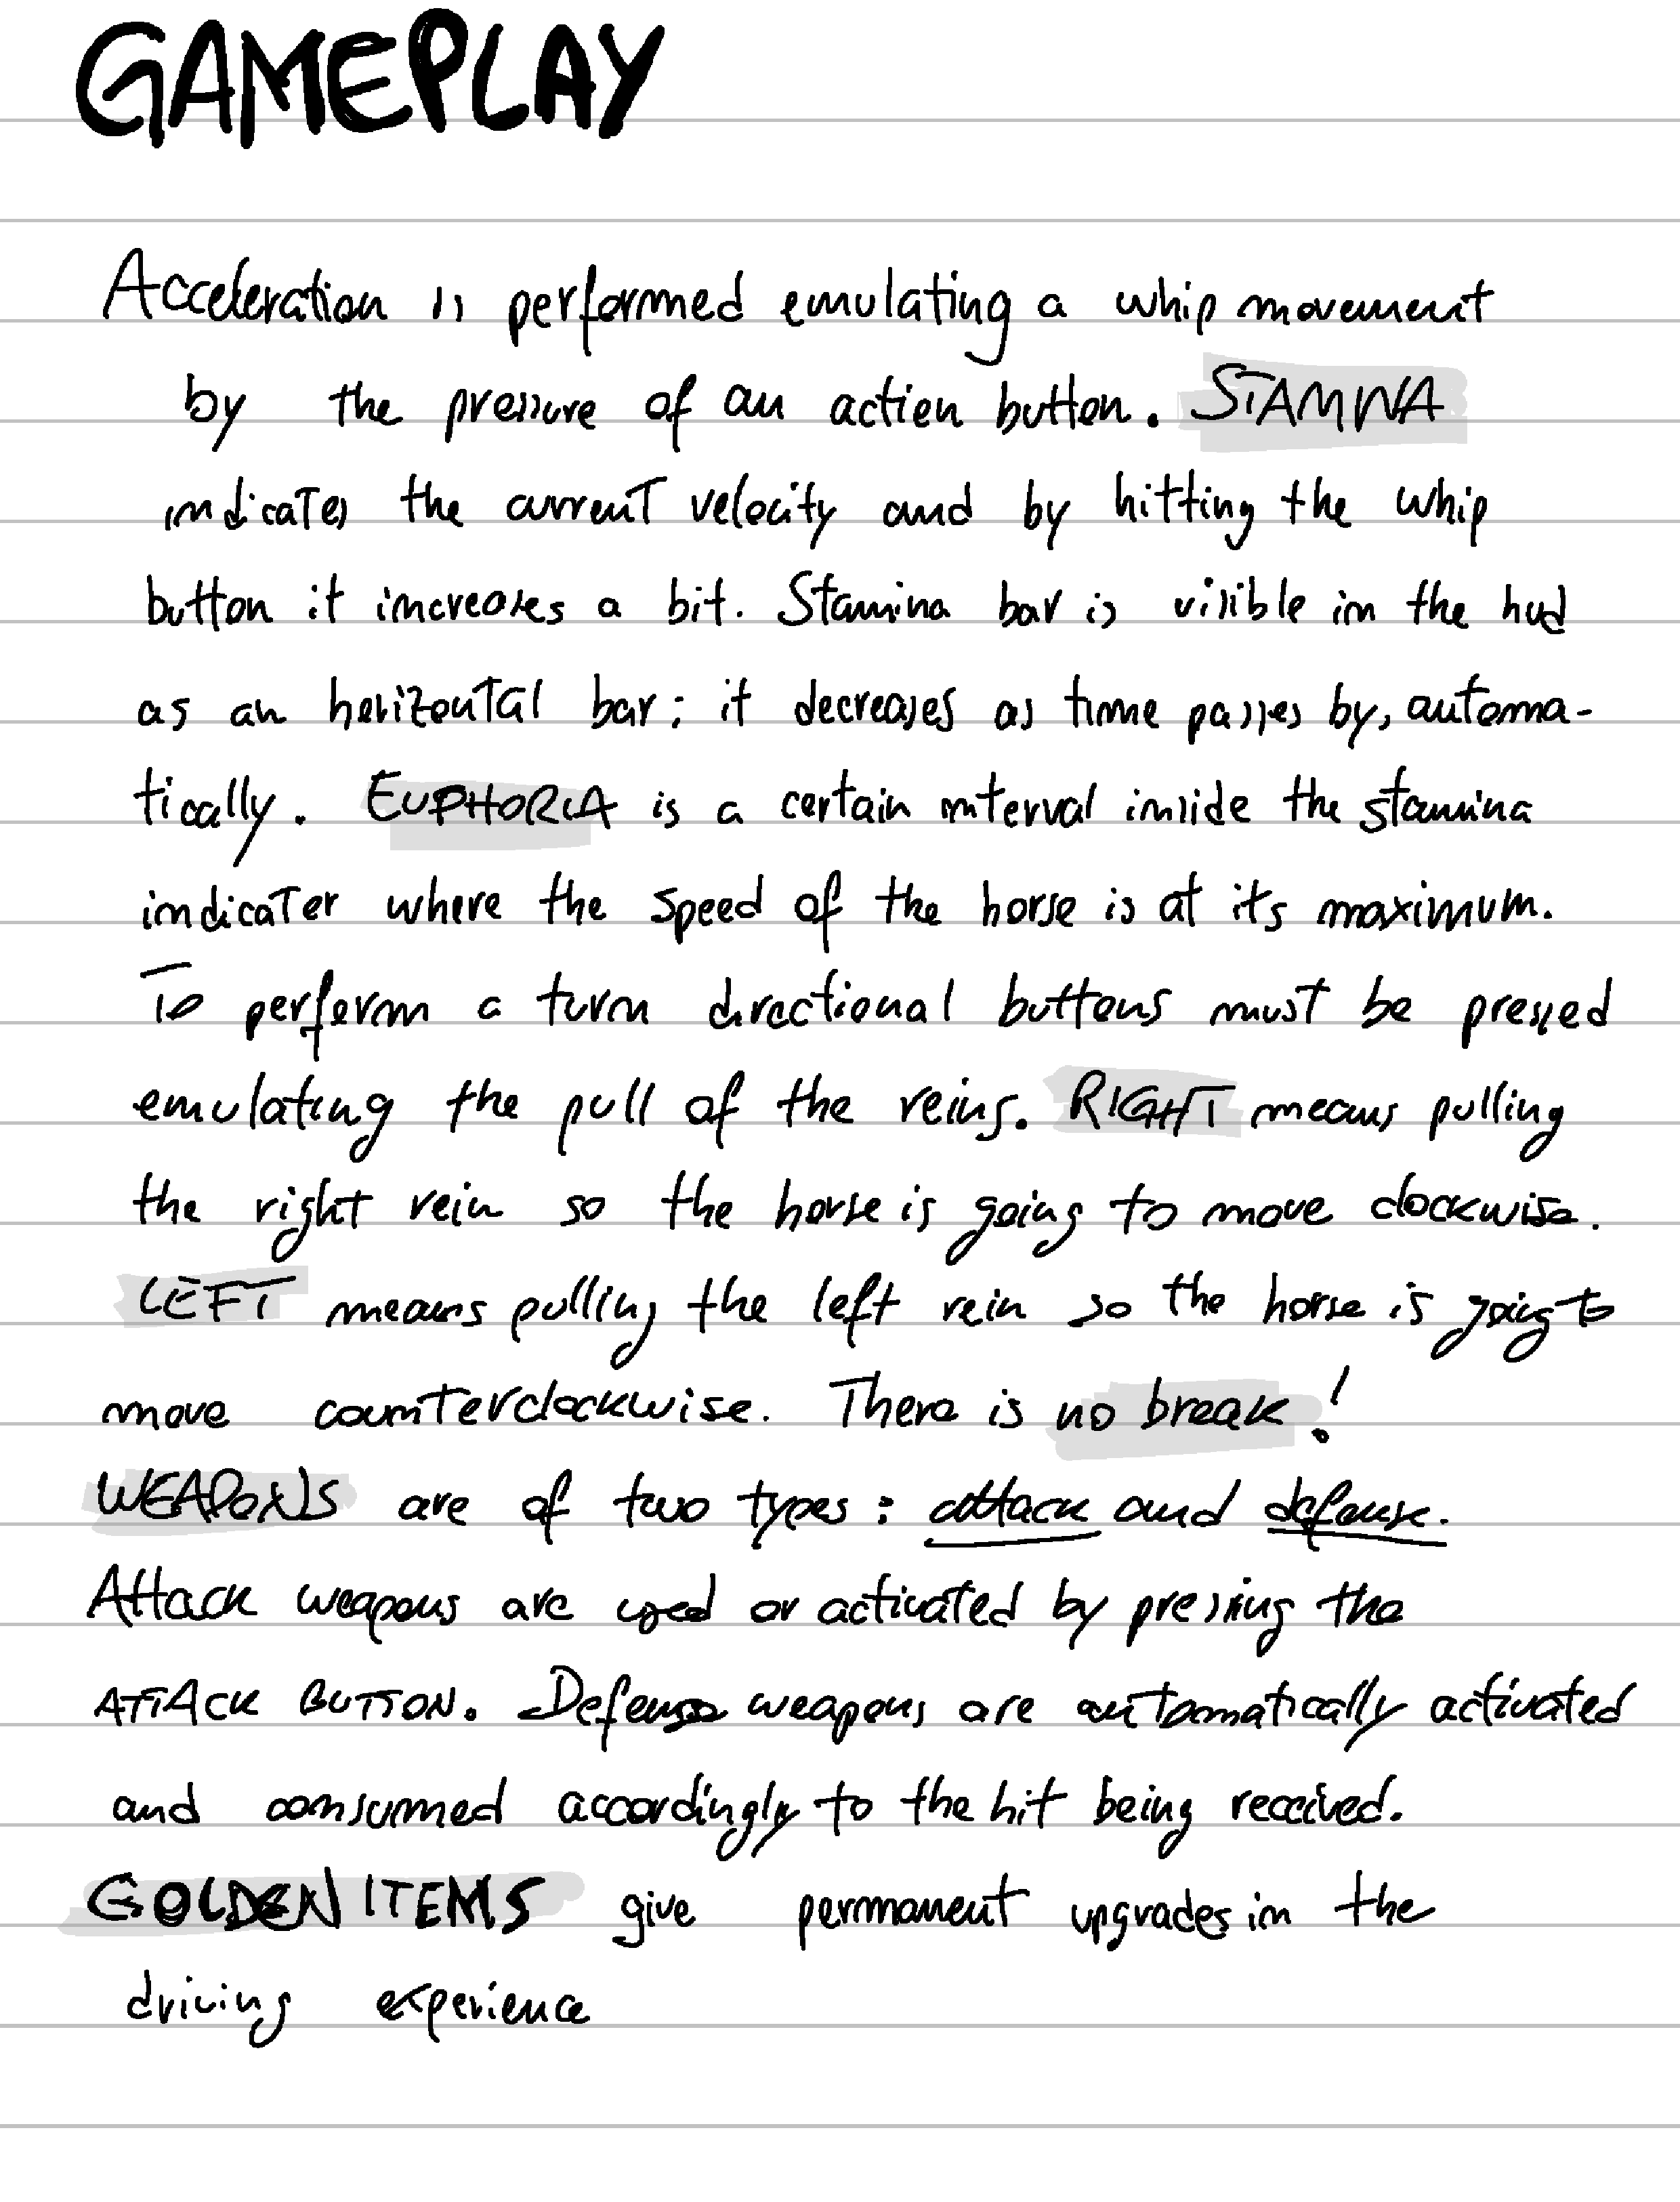 GAMEPLAY
Acceleration is performed emulating a whip movement
by the pressure of an action button. STAMINA
indicates the current velocity and by hitting the whip
button it increases a bit. Stamina bar is visible in the hud
as an horizontal bar; it decreases as time passes by, automa-
tically. EUPHORIA is a certain interval inside the stamina
indicator where the speed of the horse is at its maximum.
To perform a turn directional buttons must be pressed
emulating the pull of the reins. RIGHT means pulling
the right rein so the horse is going to move clockwise.
LEFT means pulling the left rein so the horse is going to
move counterclockwise. There is no break!
WEAPONS are of two types: attack and defense.
Attack weapons are used or activated by pressing the
ATTACK BUTTON. Defense weapons are automatically activated
and consumed accordingly to the hit being received.
GOLDEN ITEMS give permanent upgrades in the
driving experience